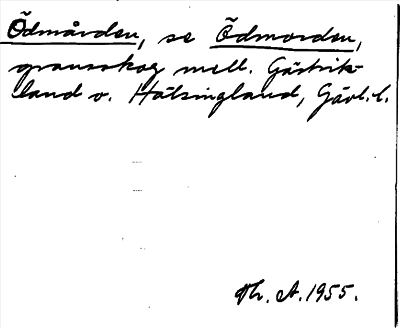 Ödmården, se Ödmorden,
gransskog mell. Gästrik-
land o. Hälsingland, Gävl.l.
Th. A. 1955.